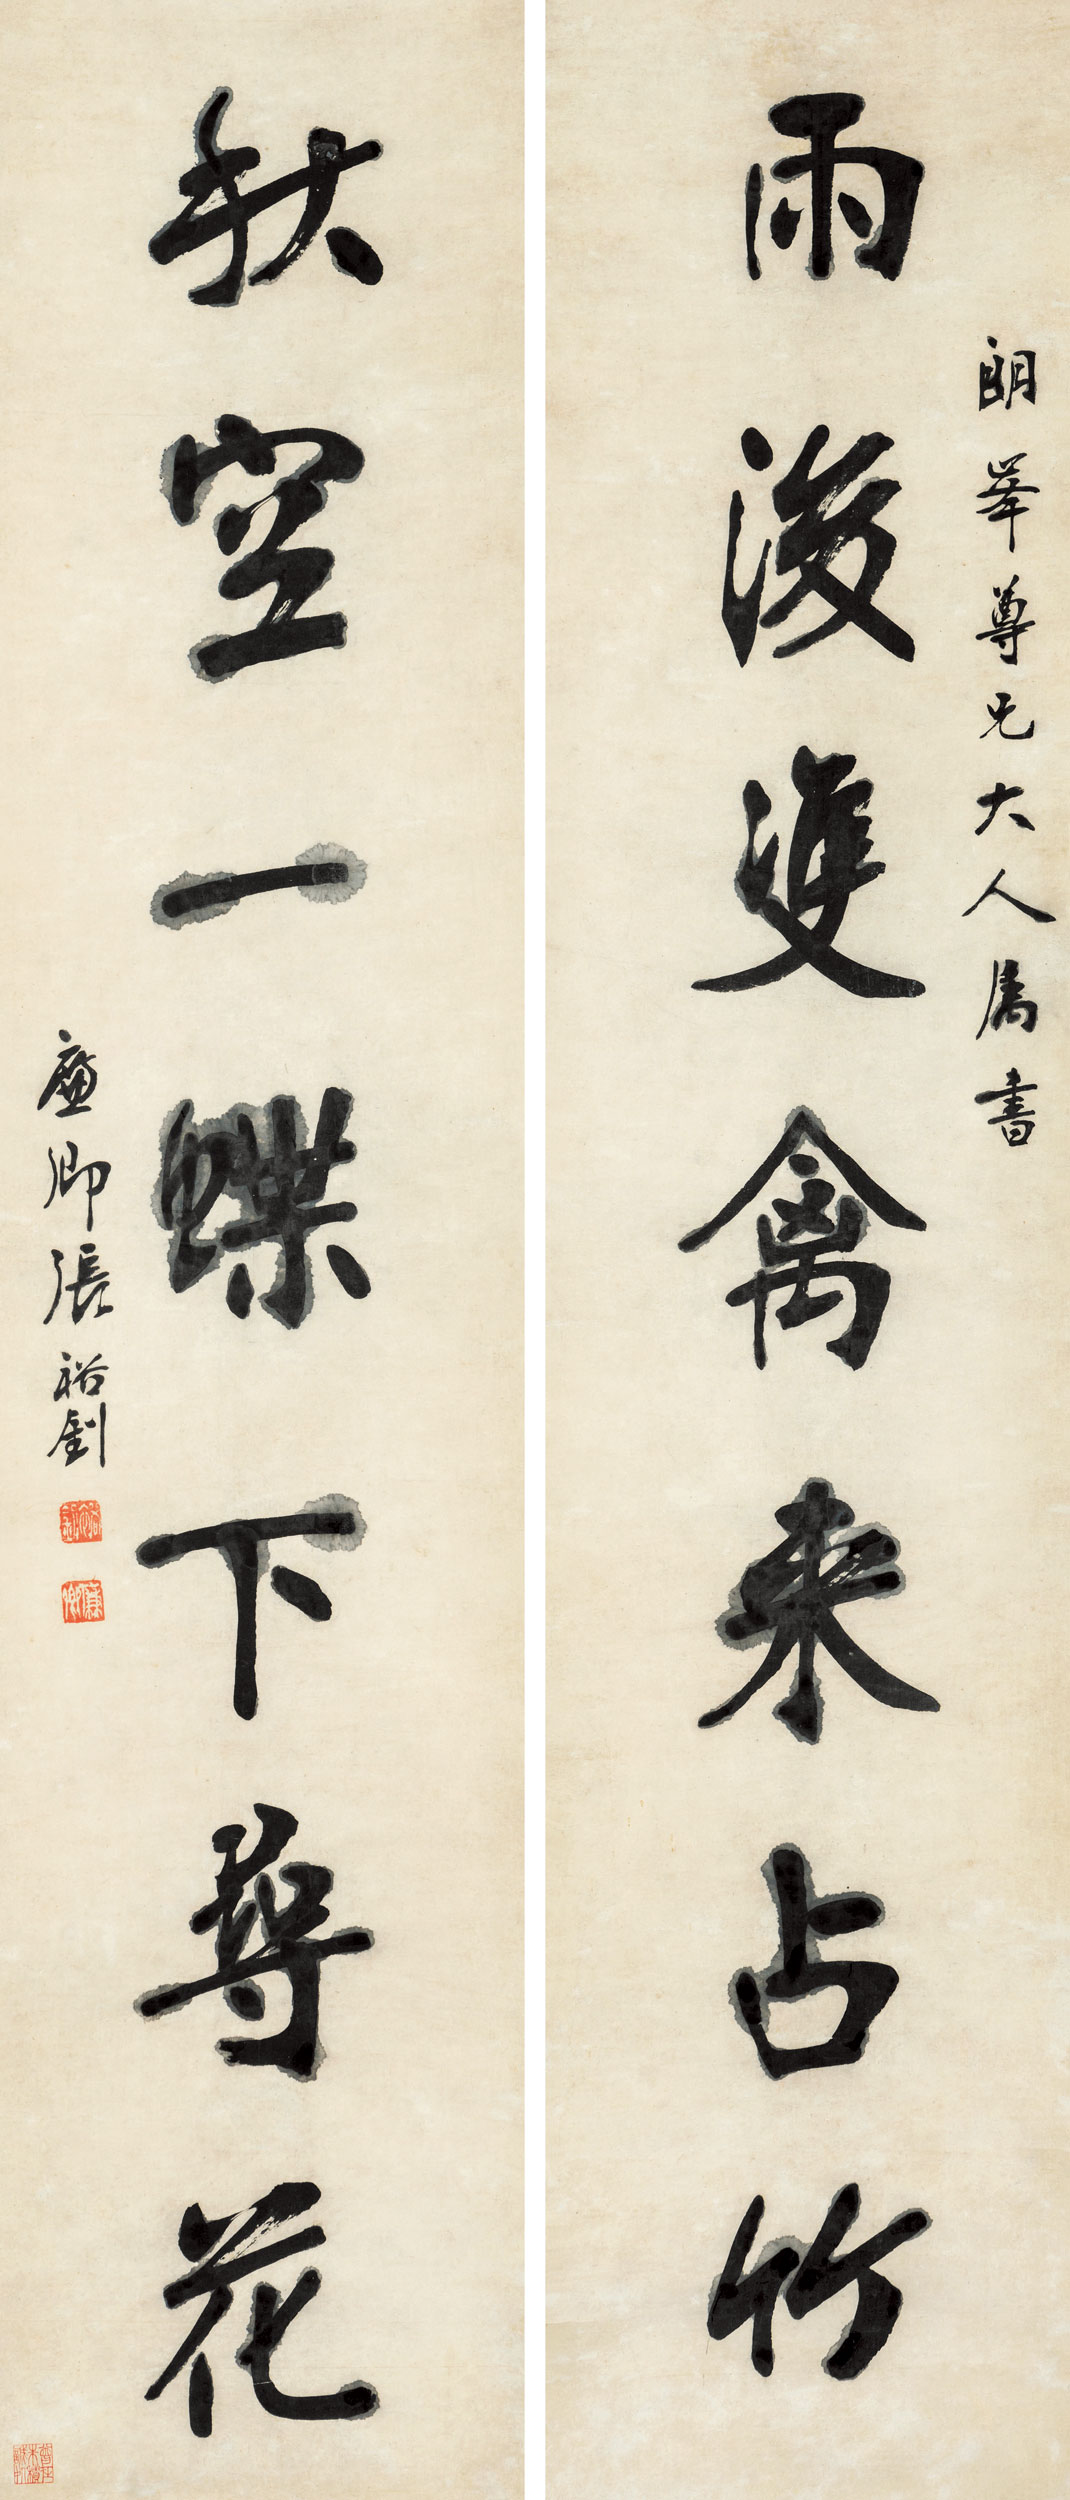 雨後雙禽來占竹
朗華尊兄大人屬書
秋空一蝶下尋花
廉卿張裕釗
裕釗
廉卿